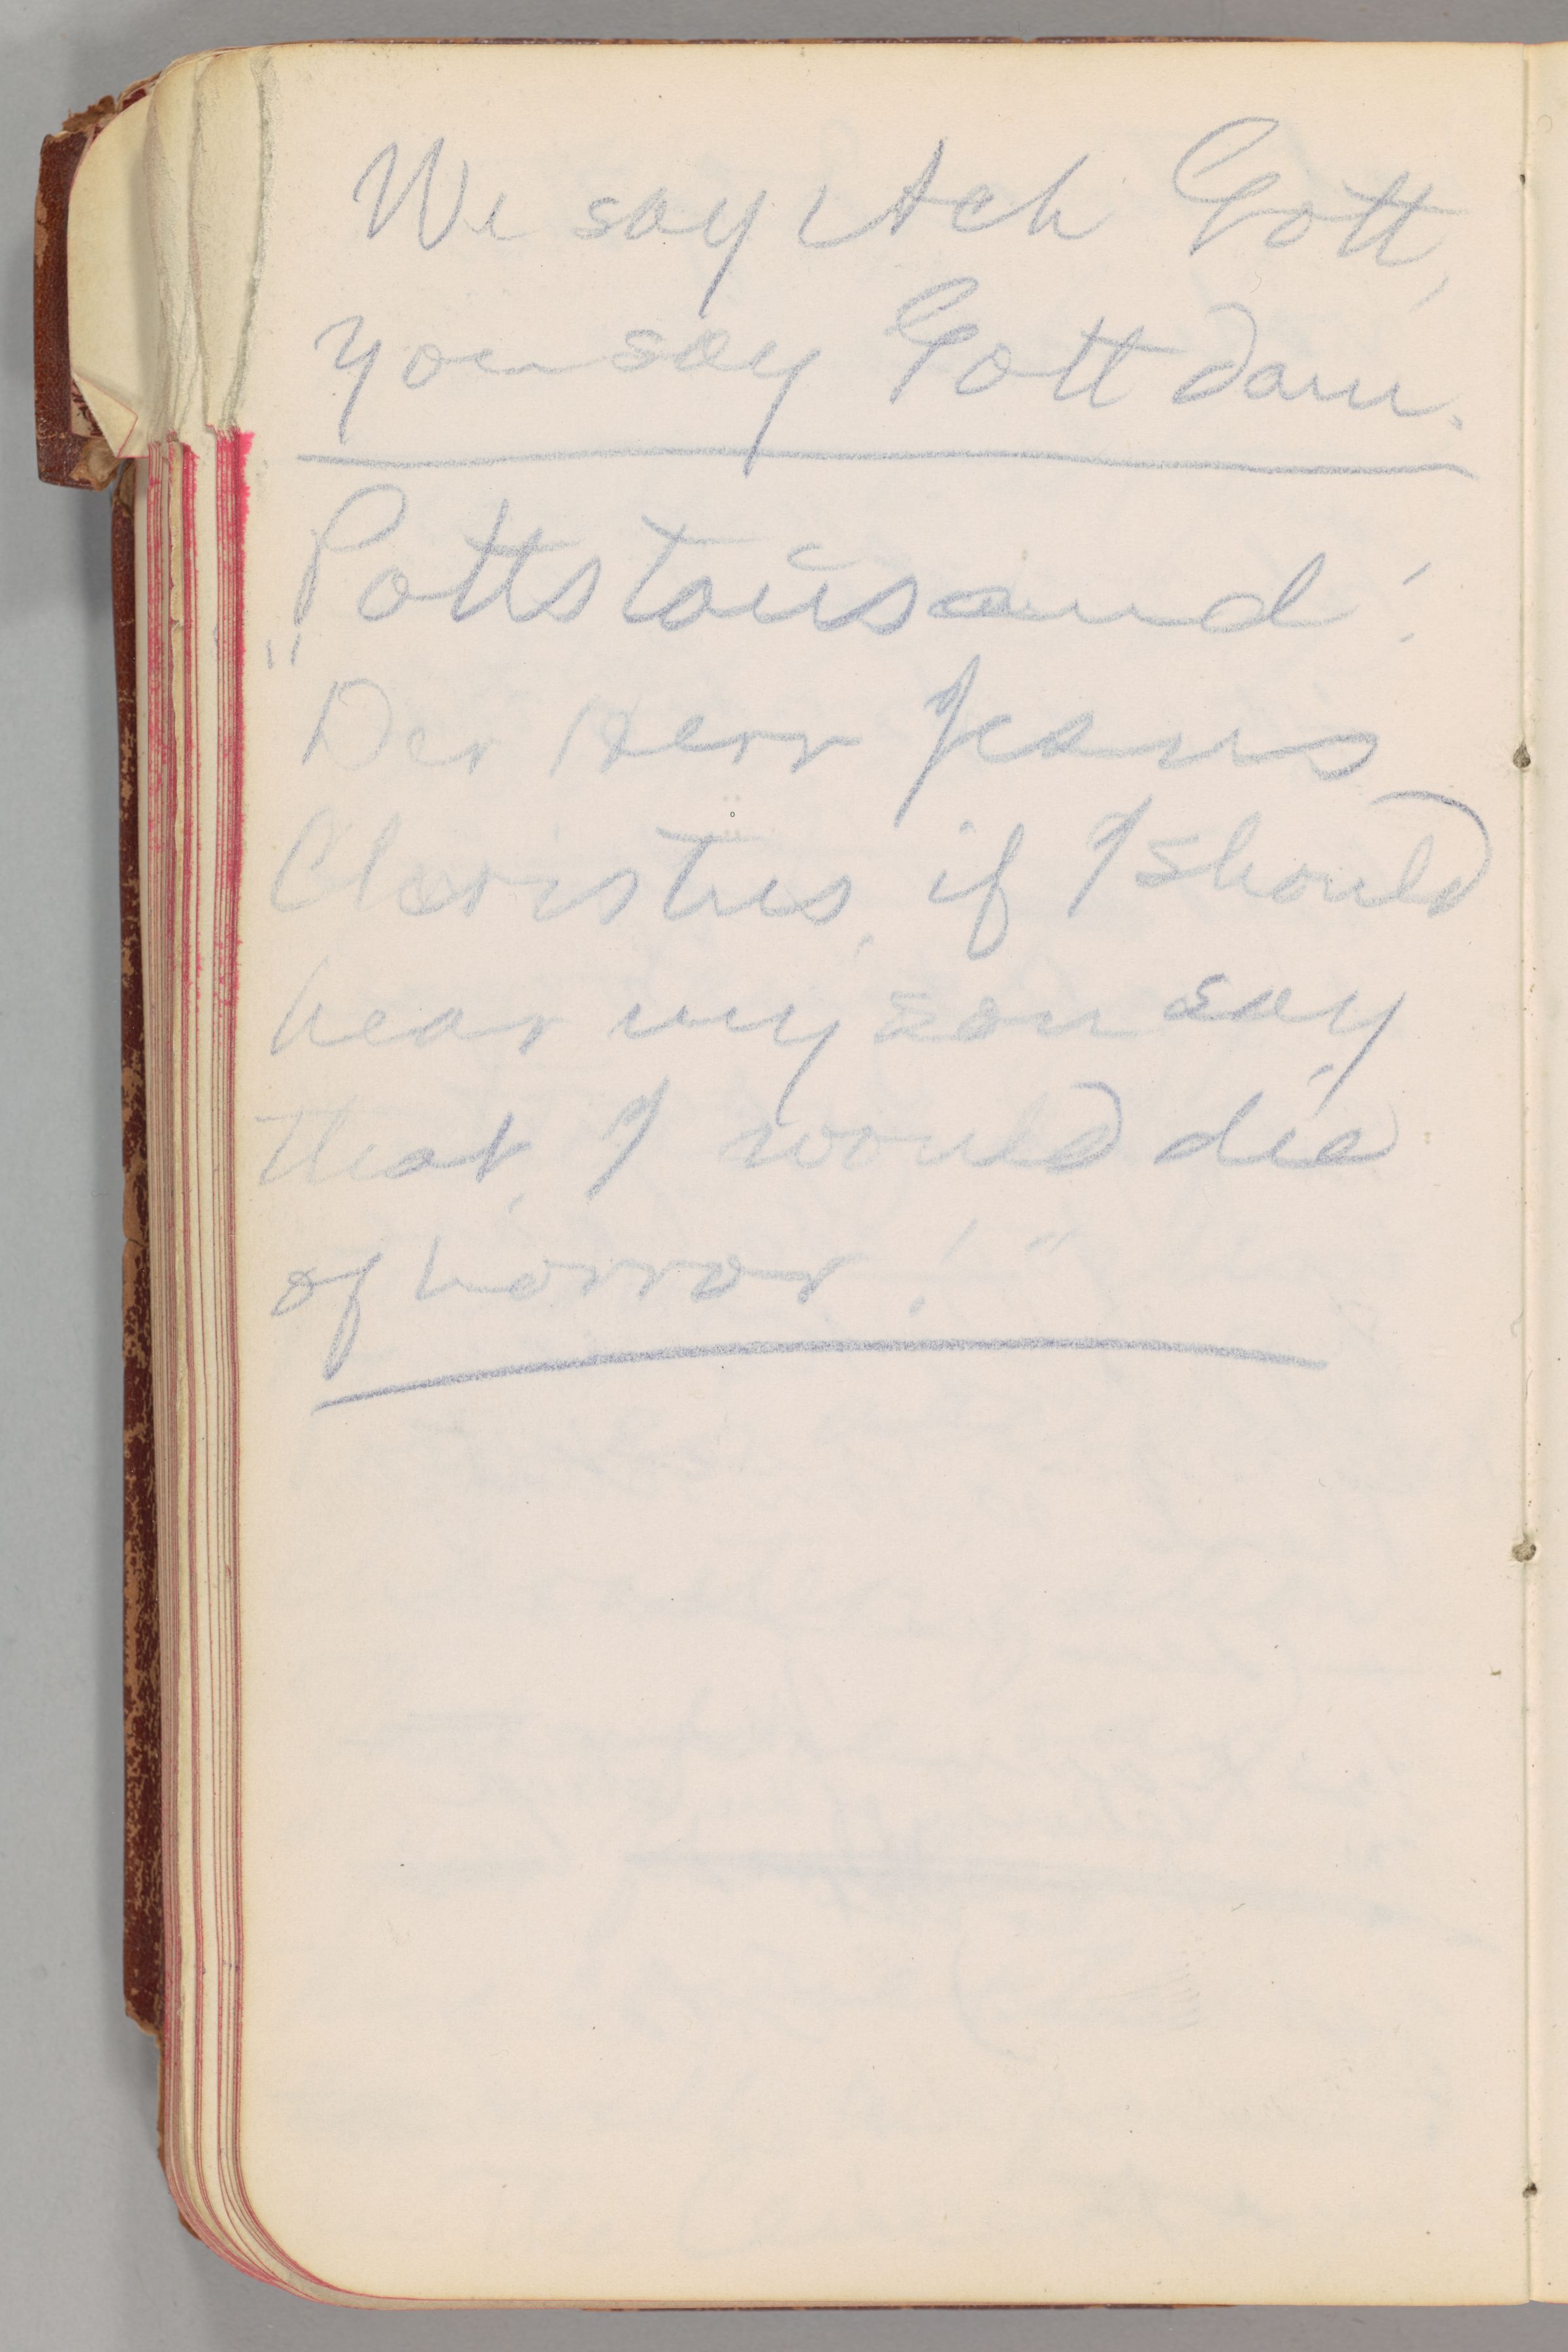 We say Ach Gott,
you say Gott dam.
„Potts tausand!
Der Herr Jesus
Christus, if I should
hear my son say
that, I would die
of horror!"